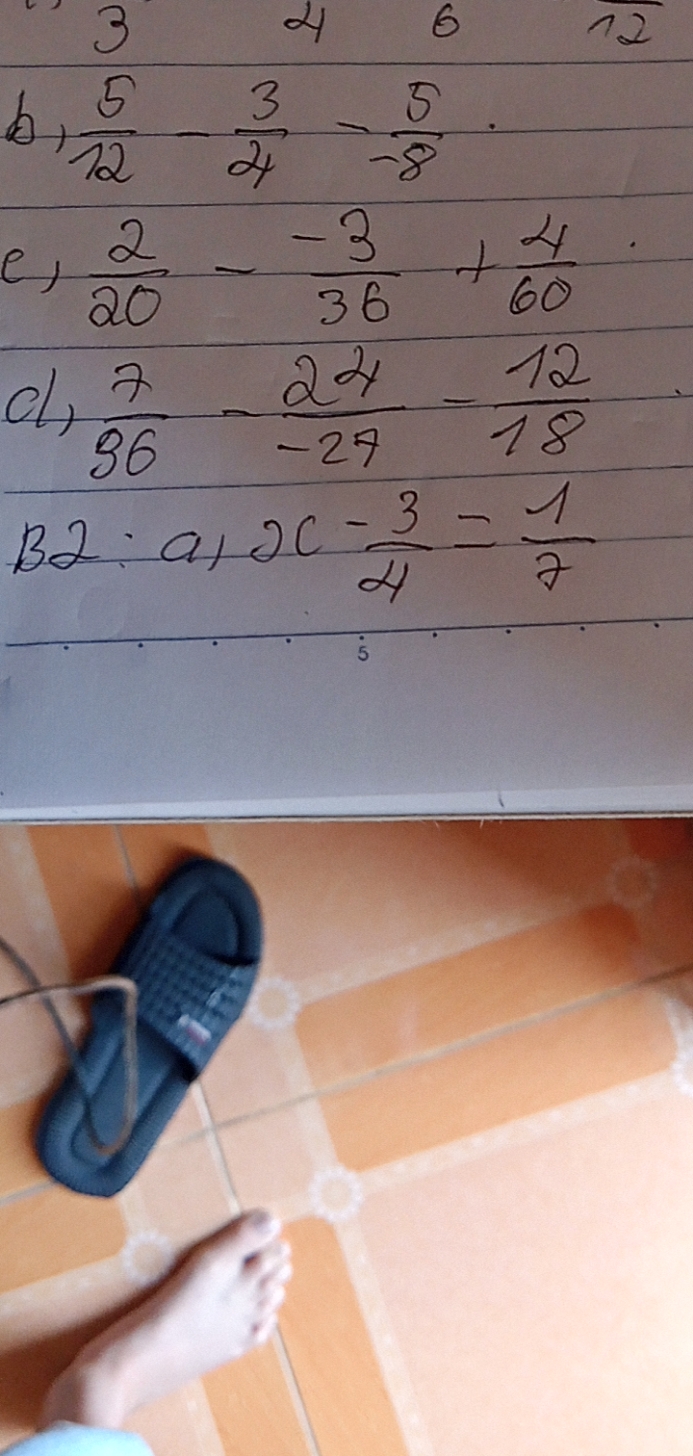 3 4 6 12
b, 5/12 - 3/4 - 5/-8.
c, 2/20 - -3/36 + 4/60.
d, 7/36 - 24/-27 - 12/18.
B2: a, x - 3/4 = 1/7
5